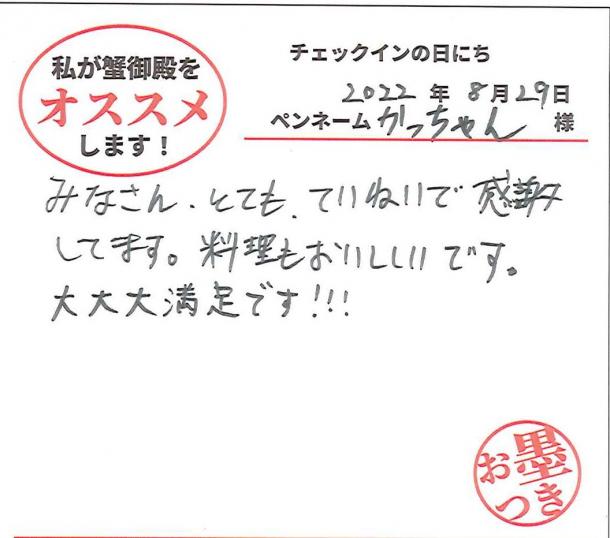 私が蟹御殿を
オススメ
します！
チェックインの日にち
2022 年 8月29日
ペンネーム かっちゃん 様
みなさん、とても、ていねいで 感謝
してます。料理もおいしいです。
大大大満足です!!!
お墨
つき